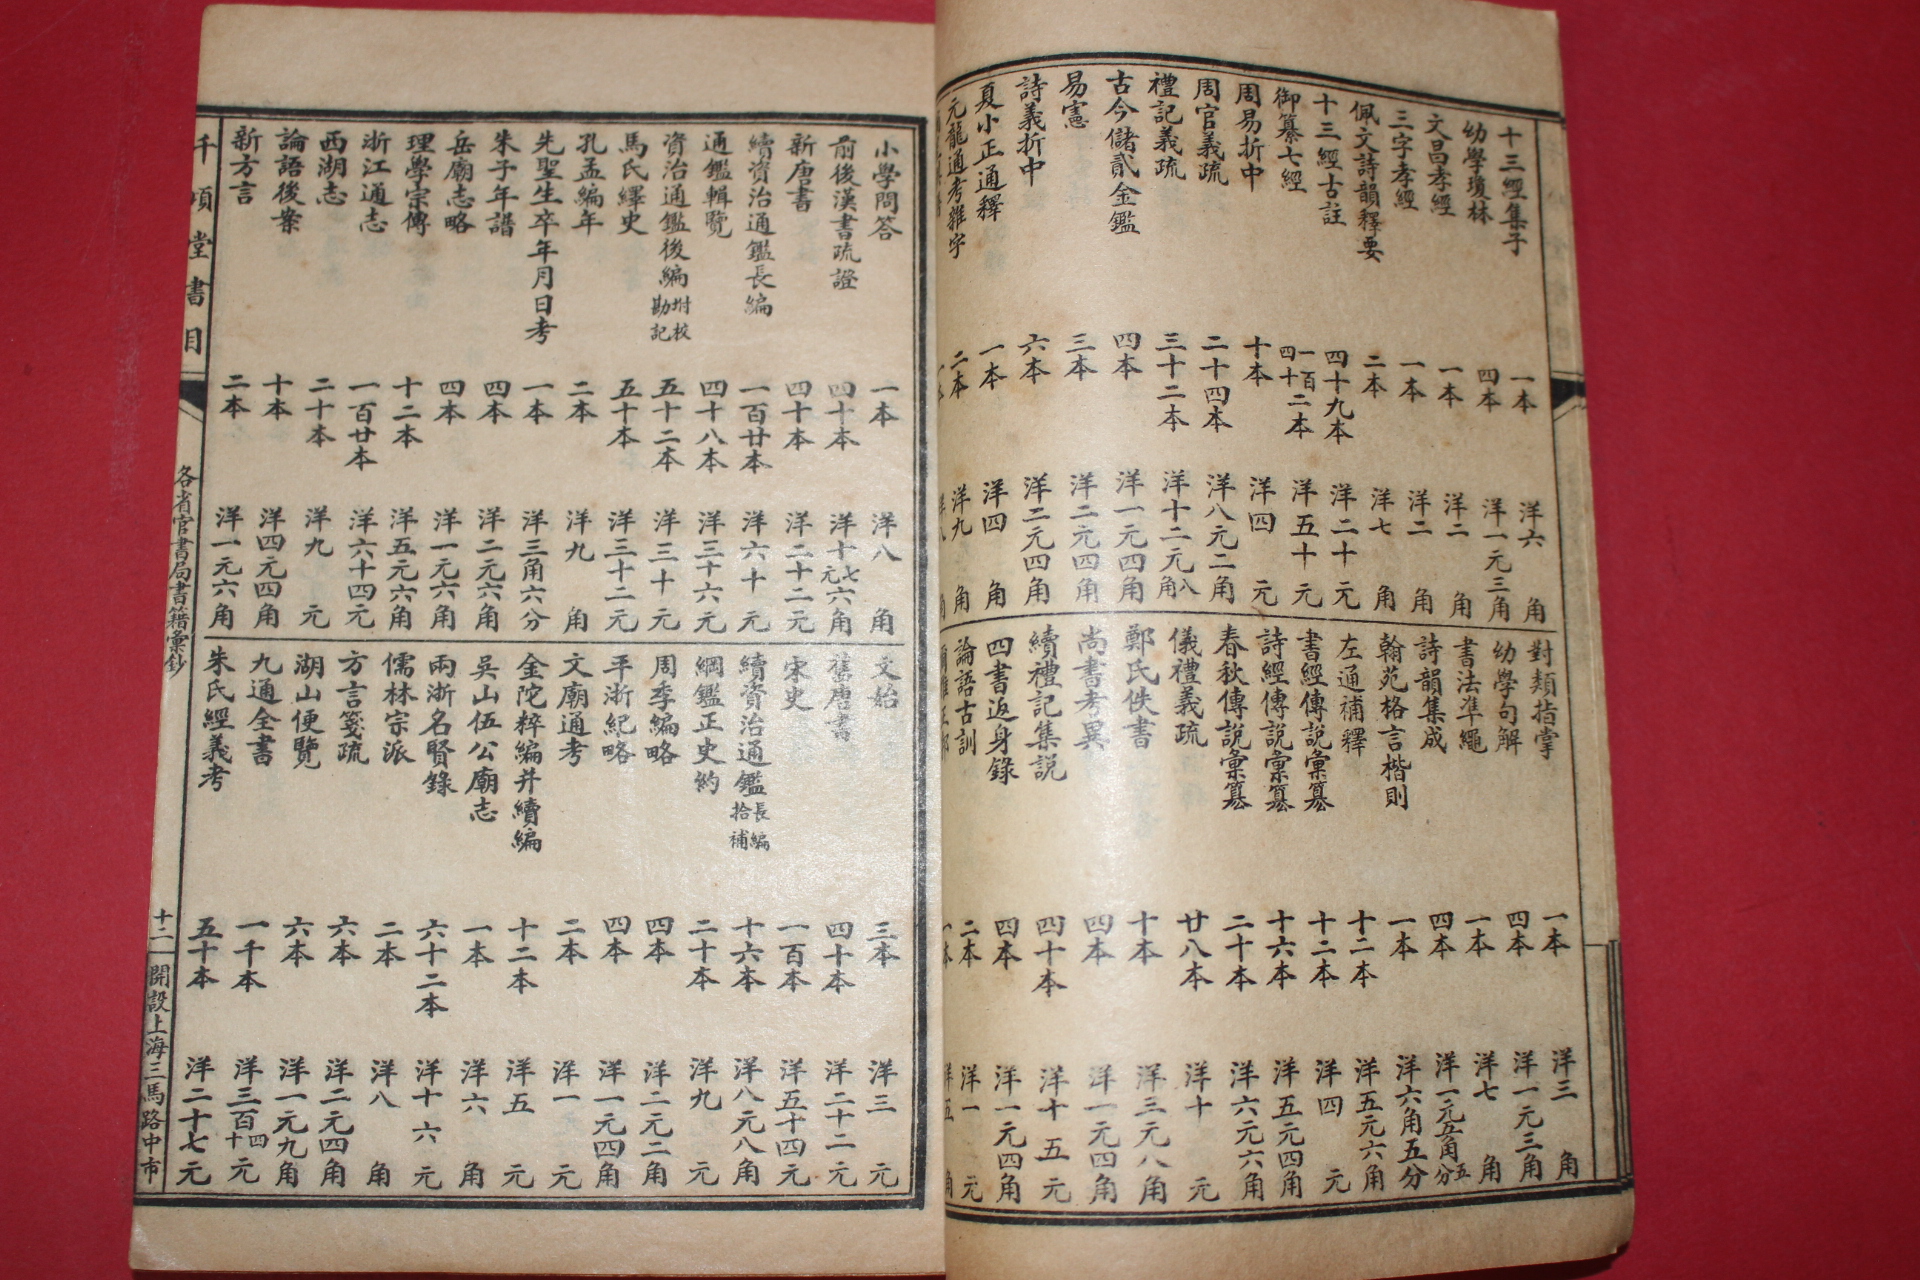 十三經集子 一本 洋六角
幼學瓊林 四本 洋一元三角
文昌孝經 一本 洋二角
三字孝經 一本 洋二角
佩文詩韻釋要 二本 洋七角
十三經古註 四十九本 洋二十元
御纂七經 一百四十二本 洋五十元
周易折中 十本 洋四元
周官義疏 二十四本 洋八元二角
禮記義疏 三十二本 洋十二元八角
古今儲貳金鑑 四本 洋一元四角
易憲 三本 洋二元四角
詩義折中 六本 洋二元四角
夏小正通釋 一本 洋四角
元龍通考雜字 二本 洋九角
對類指掌 一本 洋三角
幼學句解 四本 洋一元三角
書法準繩 一本 洋七角
詩韻集成 四本 洋一元五角五分
翰苑格言楷則 一本 洋六角五分
左通補釋 十二本 洋五元六角
書經傳說彙纂 十二本 洋四元
詩經傳說彙纂 十六本 洋五元四角
春秋傳說彙纂 二十本 洋六元六角
儀禮義疏 廿八本 洋十元
鄭氏佚書 十本 洋三元八角
尚書考異 四本 洋一元四角
續禮記集說 四十本 洋十五元
四書返身錄 四本 洋一元四角
論語古訓 二本 洋一元
小學問答 一本 洋八角
前後漢書疏證 四十本 洋十七元六角
新唐書 四十本 洋二十二元
續資治通鑑長編 一百廿本 洋六十元
通鑑輯覽 四十八本 洋三十六元
資治通鑑後編坿校勘記 五十二本 洋三十元
馬氏繹史 五十本 洋三十二元
孔孟編年 二本 洋九角
先聖生卒年月日考 一本 洋三角六分
朱子年譜 四本 洋二元六角
岳廟志略 四本 洋一元六角
理學宗傳 十二本 洋五元六角
浙江通志 一百廿本 洋六十四元
西湖志 二十本 洋九元
論語後案 十本 洋四元四角
新方言 二本 洋一元六角
文始 三本 洋三元
舊唐書 四十本 洋二十二元
宋史 一百本 洋五十四元
續資治通鑑長編拾補 十六本 洋八元八角
綱鑑正史約 二十本 洋九元
周季編略 四本 洋二元二角
平浙紀略 四本 洋一元四角
文廟通考 二本 洋一元
金陀粹編并續編 十二本 洋五元
吳山伍公廟志 一本 洋六角
兩浙名賢錄 六十二本 洋十六元
儒林宗派 二本 洋八角
方言箋疏 六本 洋二元四角
湖山便覽 六本 洋一元九角
九通全書 一千本 洋三百四十元
朱氏經義考 五十本 洋二十七元
千頃堂書目 各省官書局書籍彙鈔 十二 開設上海三馬路中市